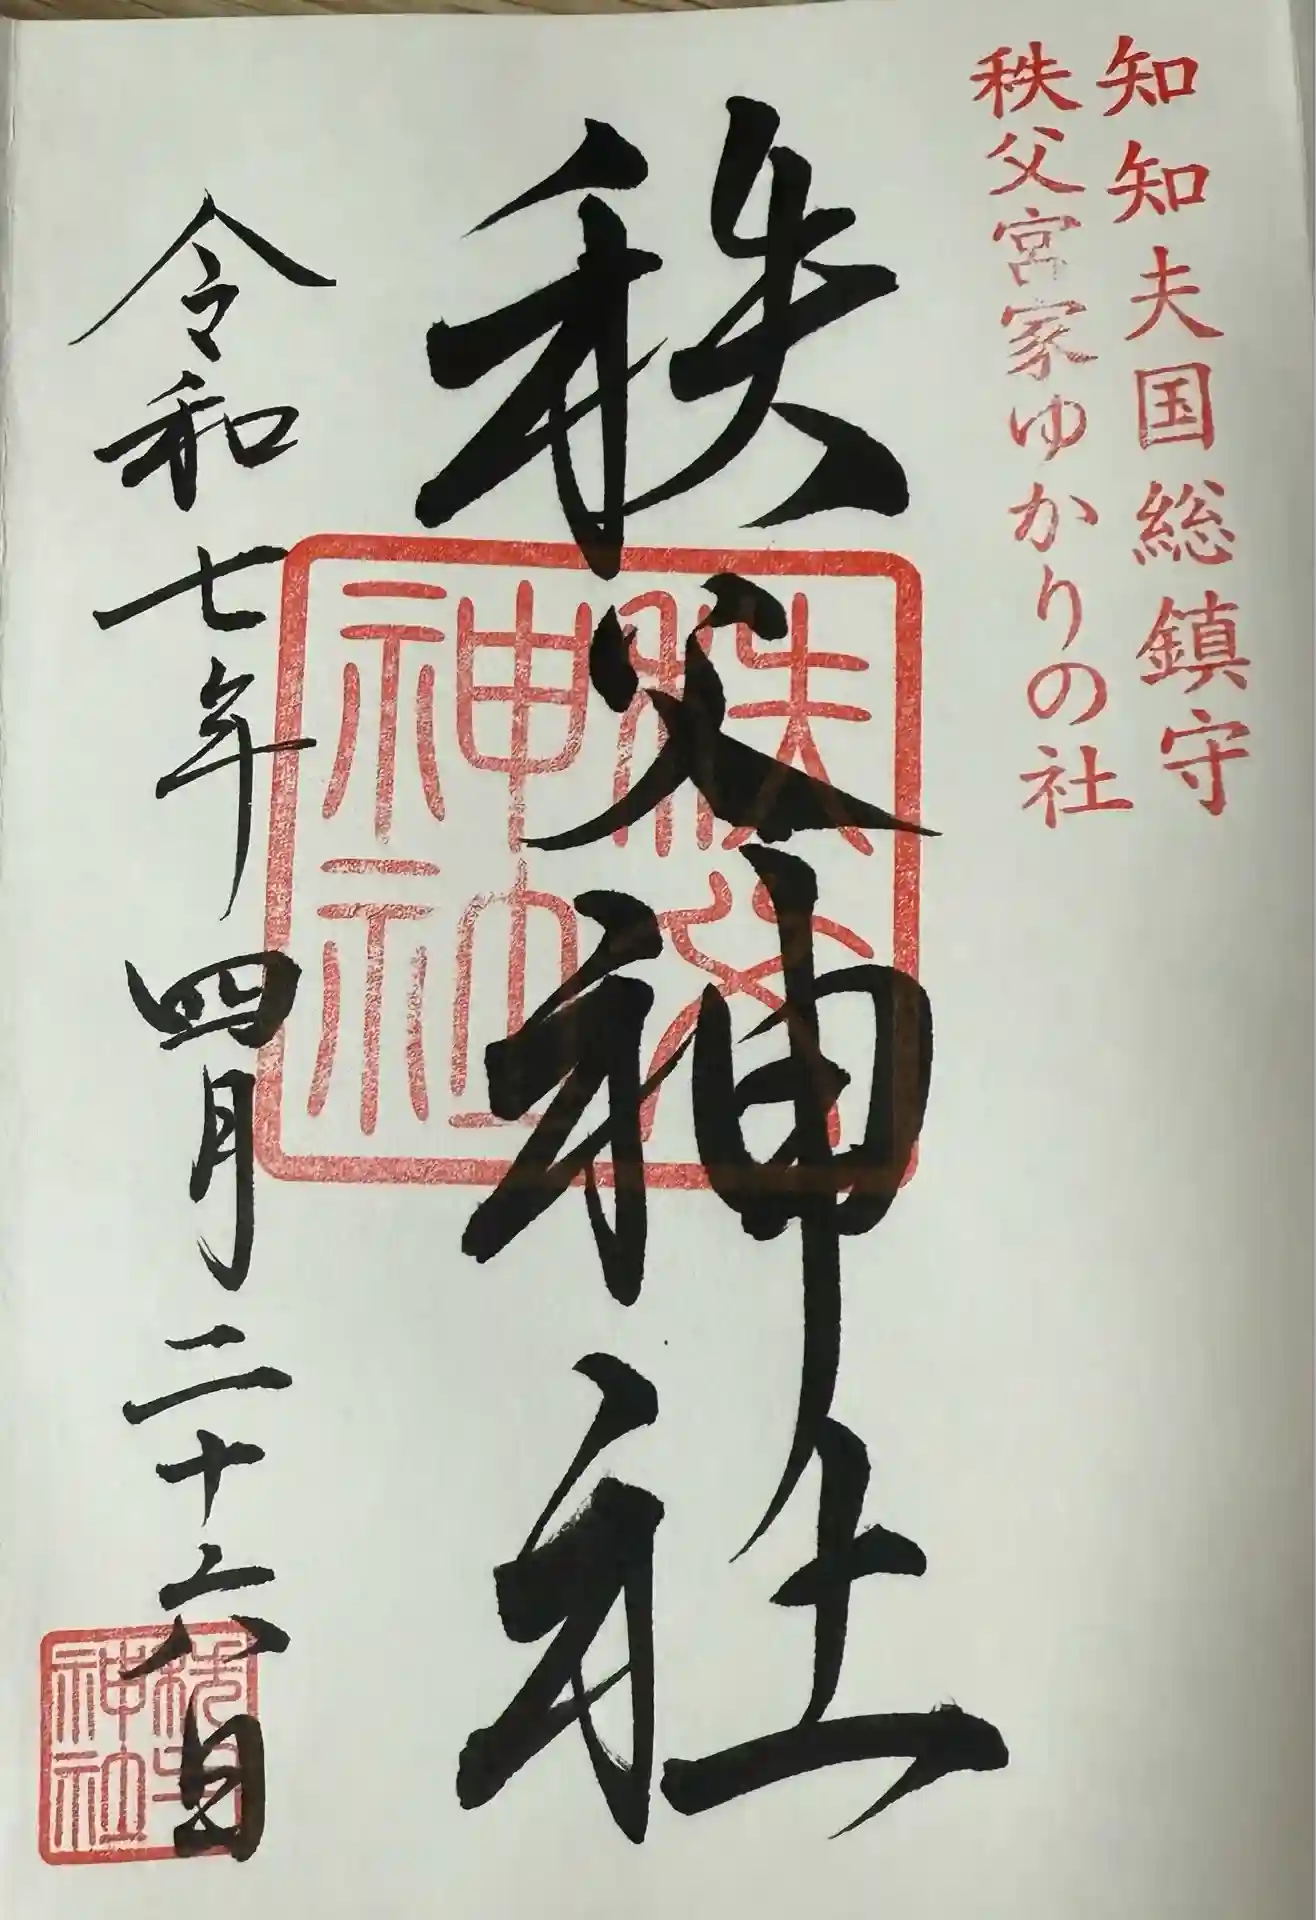 知知夫国総鎮守
秩父宮家ゆかりの社
秩父神社
秩父神社
令和七年四月二十六日
秩父神社